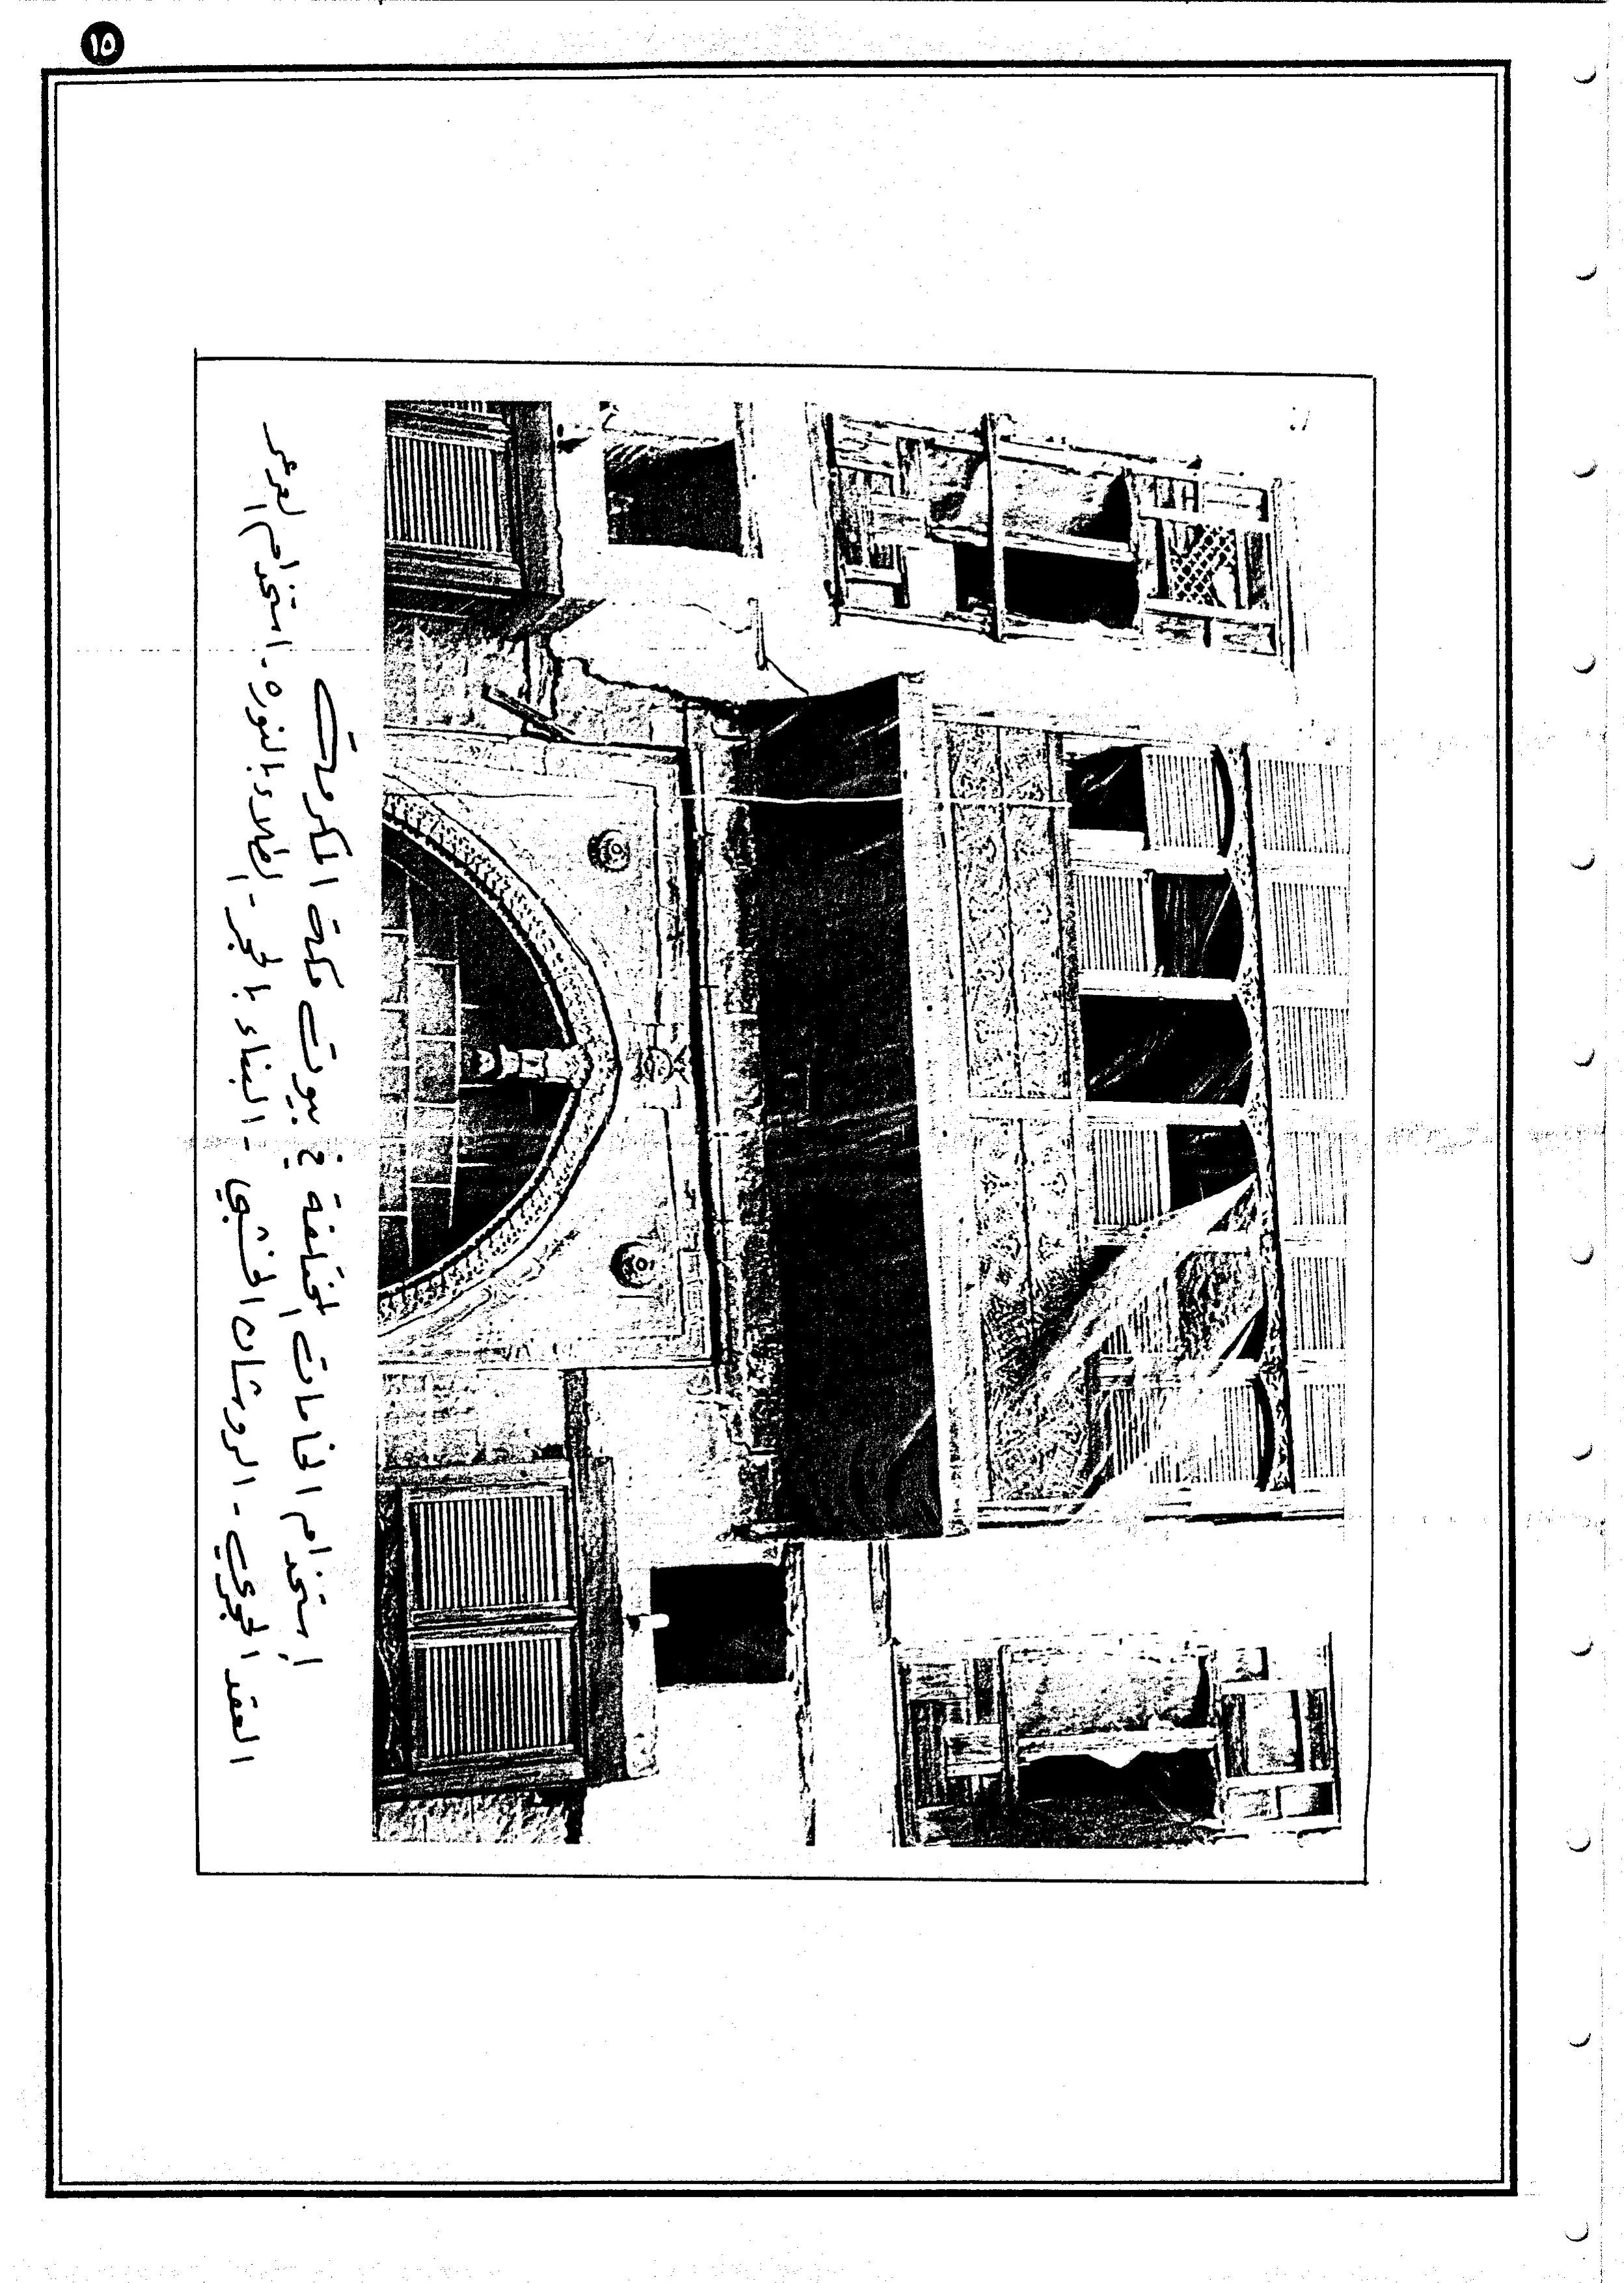 ١٥
إستخدام الخامات المختلفة في بيوت مكة المكرمة
العقد الحجري - الروشان الخشبي - البناء بالحجر - الطلاء بالنوره - استخدام